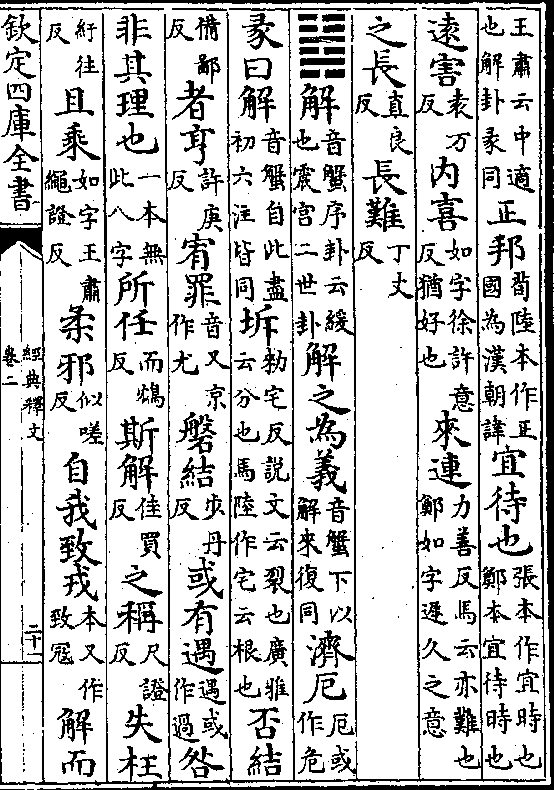 王肅云中適也解卦彖同正邦荀陸本作正國為漢朝諱宜待也張本作宜時也鄭本宜待時也
遠害袁万反內喜如字徐許意反猶好也來連力善反馬云亦難也鄭如字遲久之意
之長直良反長難丁丈反
䷧解音蟹序卦云緩也震宮二世卦解之為義音蟹下以解來復同濟厄厄或作危
彖曰解音蟹自此盡初六注皆同坼勑宅反說文云裂也廣雅云分也馬陸作宅云根也否結
備鄙反者亨許庚反宥罪音又京作尤磐結步丹反或有遇遇或作過咎
非其理也一本無此八字所任而鴆反斯解佳買反之稱尺證反失枉
紆往反且乘如字王肅繩證反柔邪似嗟反自我致戎本又作致寇解而
欽定四庫全書
經典釋文
卷二
二十一